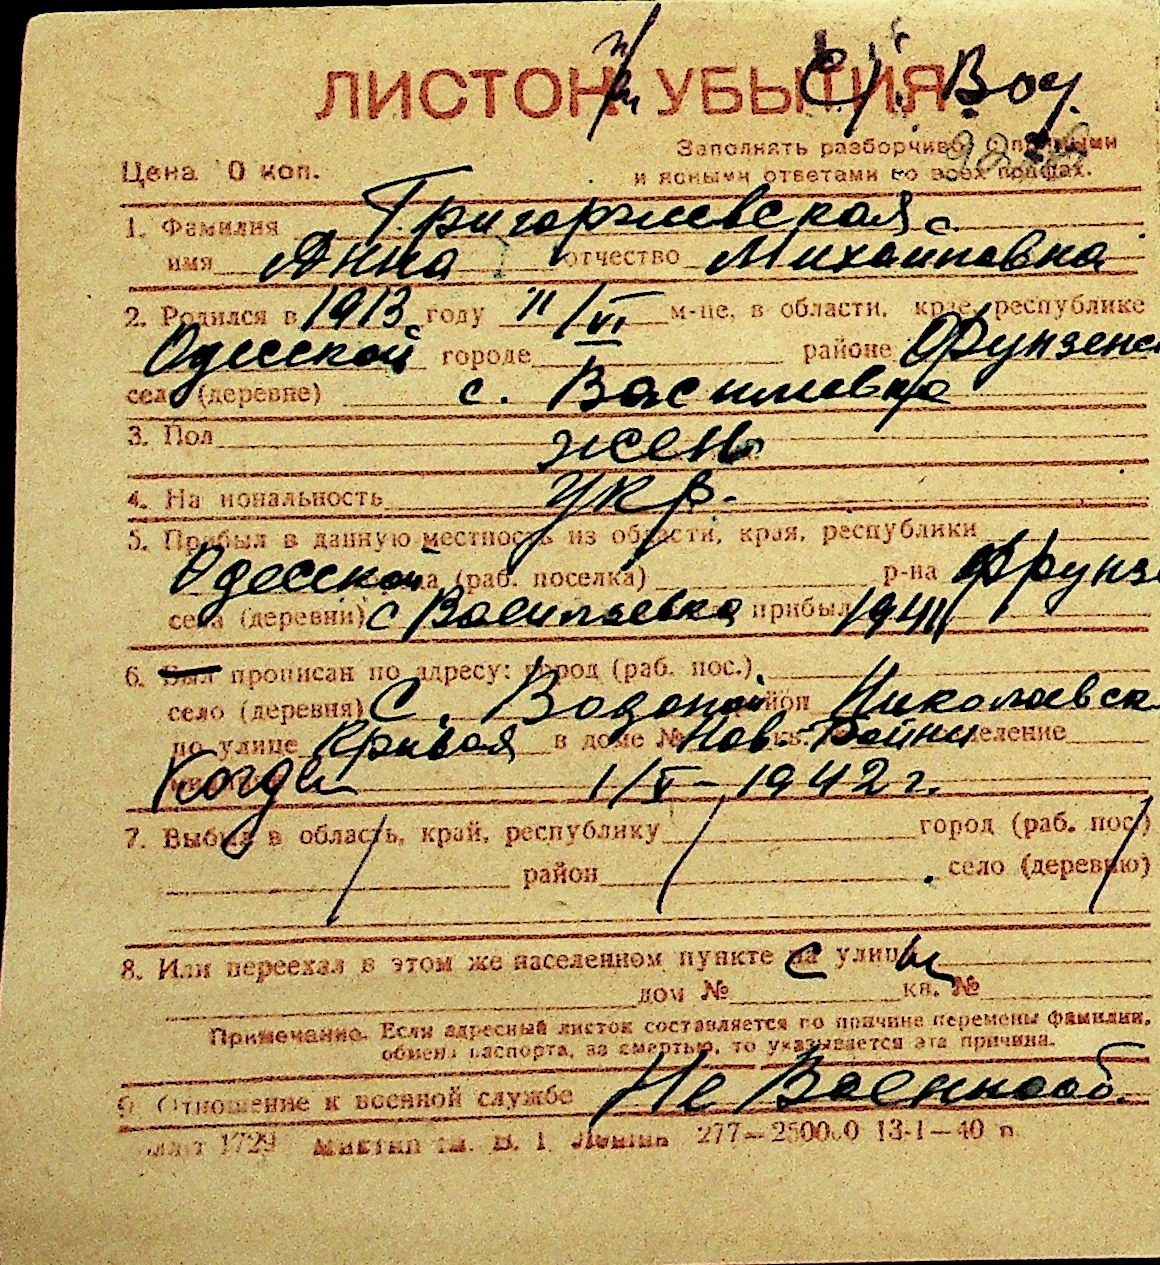 ЛИСТОК УБЫТИЯ
с. Вод.
Заполнять разборчиво, с полными
Цена 10 коп.
и ясными ответами во всех графах.
1. Фамилия Григоржевская
имя Анна отчество Михайловна
2. Родился в 1913 году 11/VI м-це, в области, крае, республике
Одесской городе районе Фрунзенс
село (деревне) с. Василевка
3. Пол жен
4. Национальность укр.
5. Прибыл в данную местность из области, края, республики
Одесской города (раб. поселка) р-на Фрунзе
села (деревни) с Васильевка прибыл 1941
6. Был прописан по адресу: город (раб. пос.)
село (деревня) С. Водопой район Николаевск
по улице Кривая в доме № Нов. кв. отделение
Когда 1/V-1942 г.
7. Выбыл в область, край, республику город (раб. пос.)
район село (деревню)
8. Или переехал в этом же населенном пункте на улицы
дом № кв. №
Примечание. Если адресный листок составляется по причине перемены фамилии,
обмена паспорта, за смертью, то указывается эта причина.
9. Отношение к военной службе Не Военнооб.
1729 им. В. И. Ленина 277—25000 13-1—40 п.